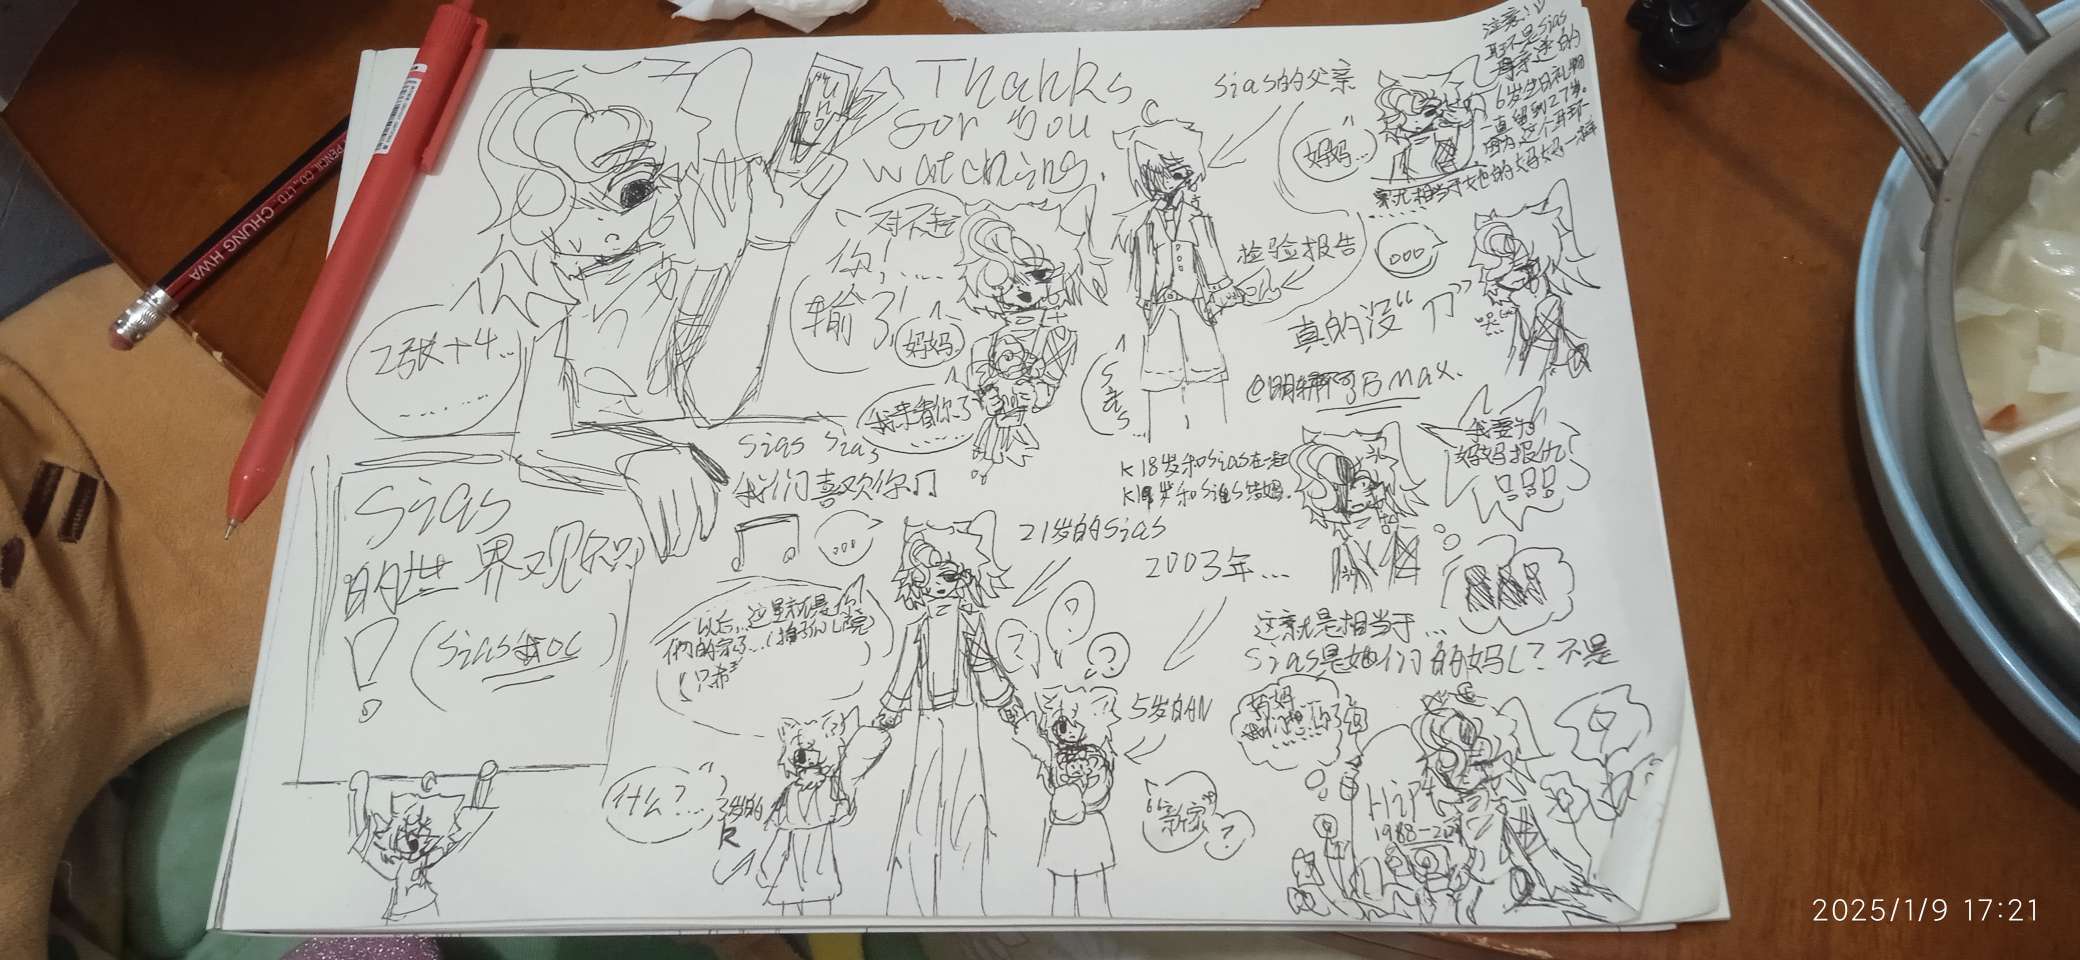 Thanks
for you
watching.
Sias的父亲
注意!
耳环是Sias
母亲送的
6岁生日礼物
一直留到27岁。
因为这个耳环
就相当于她的妈妈一样
妈妈...
对不起
你!......
输了!
妈妈.
我来看你了
......
检验报告
。。。
真的没“刀”
@明 不可B max.
2张+4...
........
Sias Sias
我们喜欢你们
。。。
Sias
的世界观知
!
(Sias我oc)
K 18岁和Sias在一起
21岁的Sias
2003年...
我要为
妈妈报仇!
以后...这里就是你
们的家了...
什么?...
3岁的
K
? ? ?
5岁的N
“新家”
?
这就是相当于...
Sias是她们的妈(? 不是
妈妈...
我们想你了
1988-20
PENCIL CO., LTD. CHUNG HWA
2025/1/9 17:21